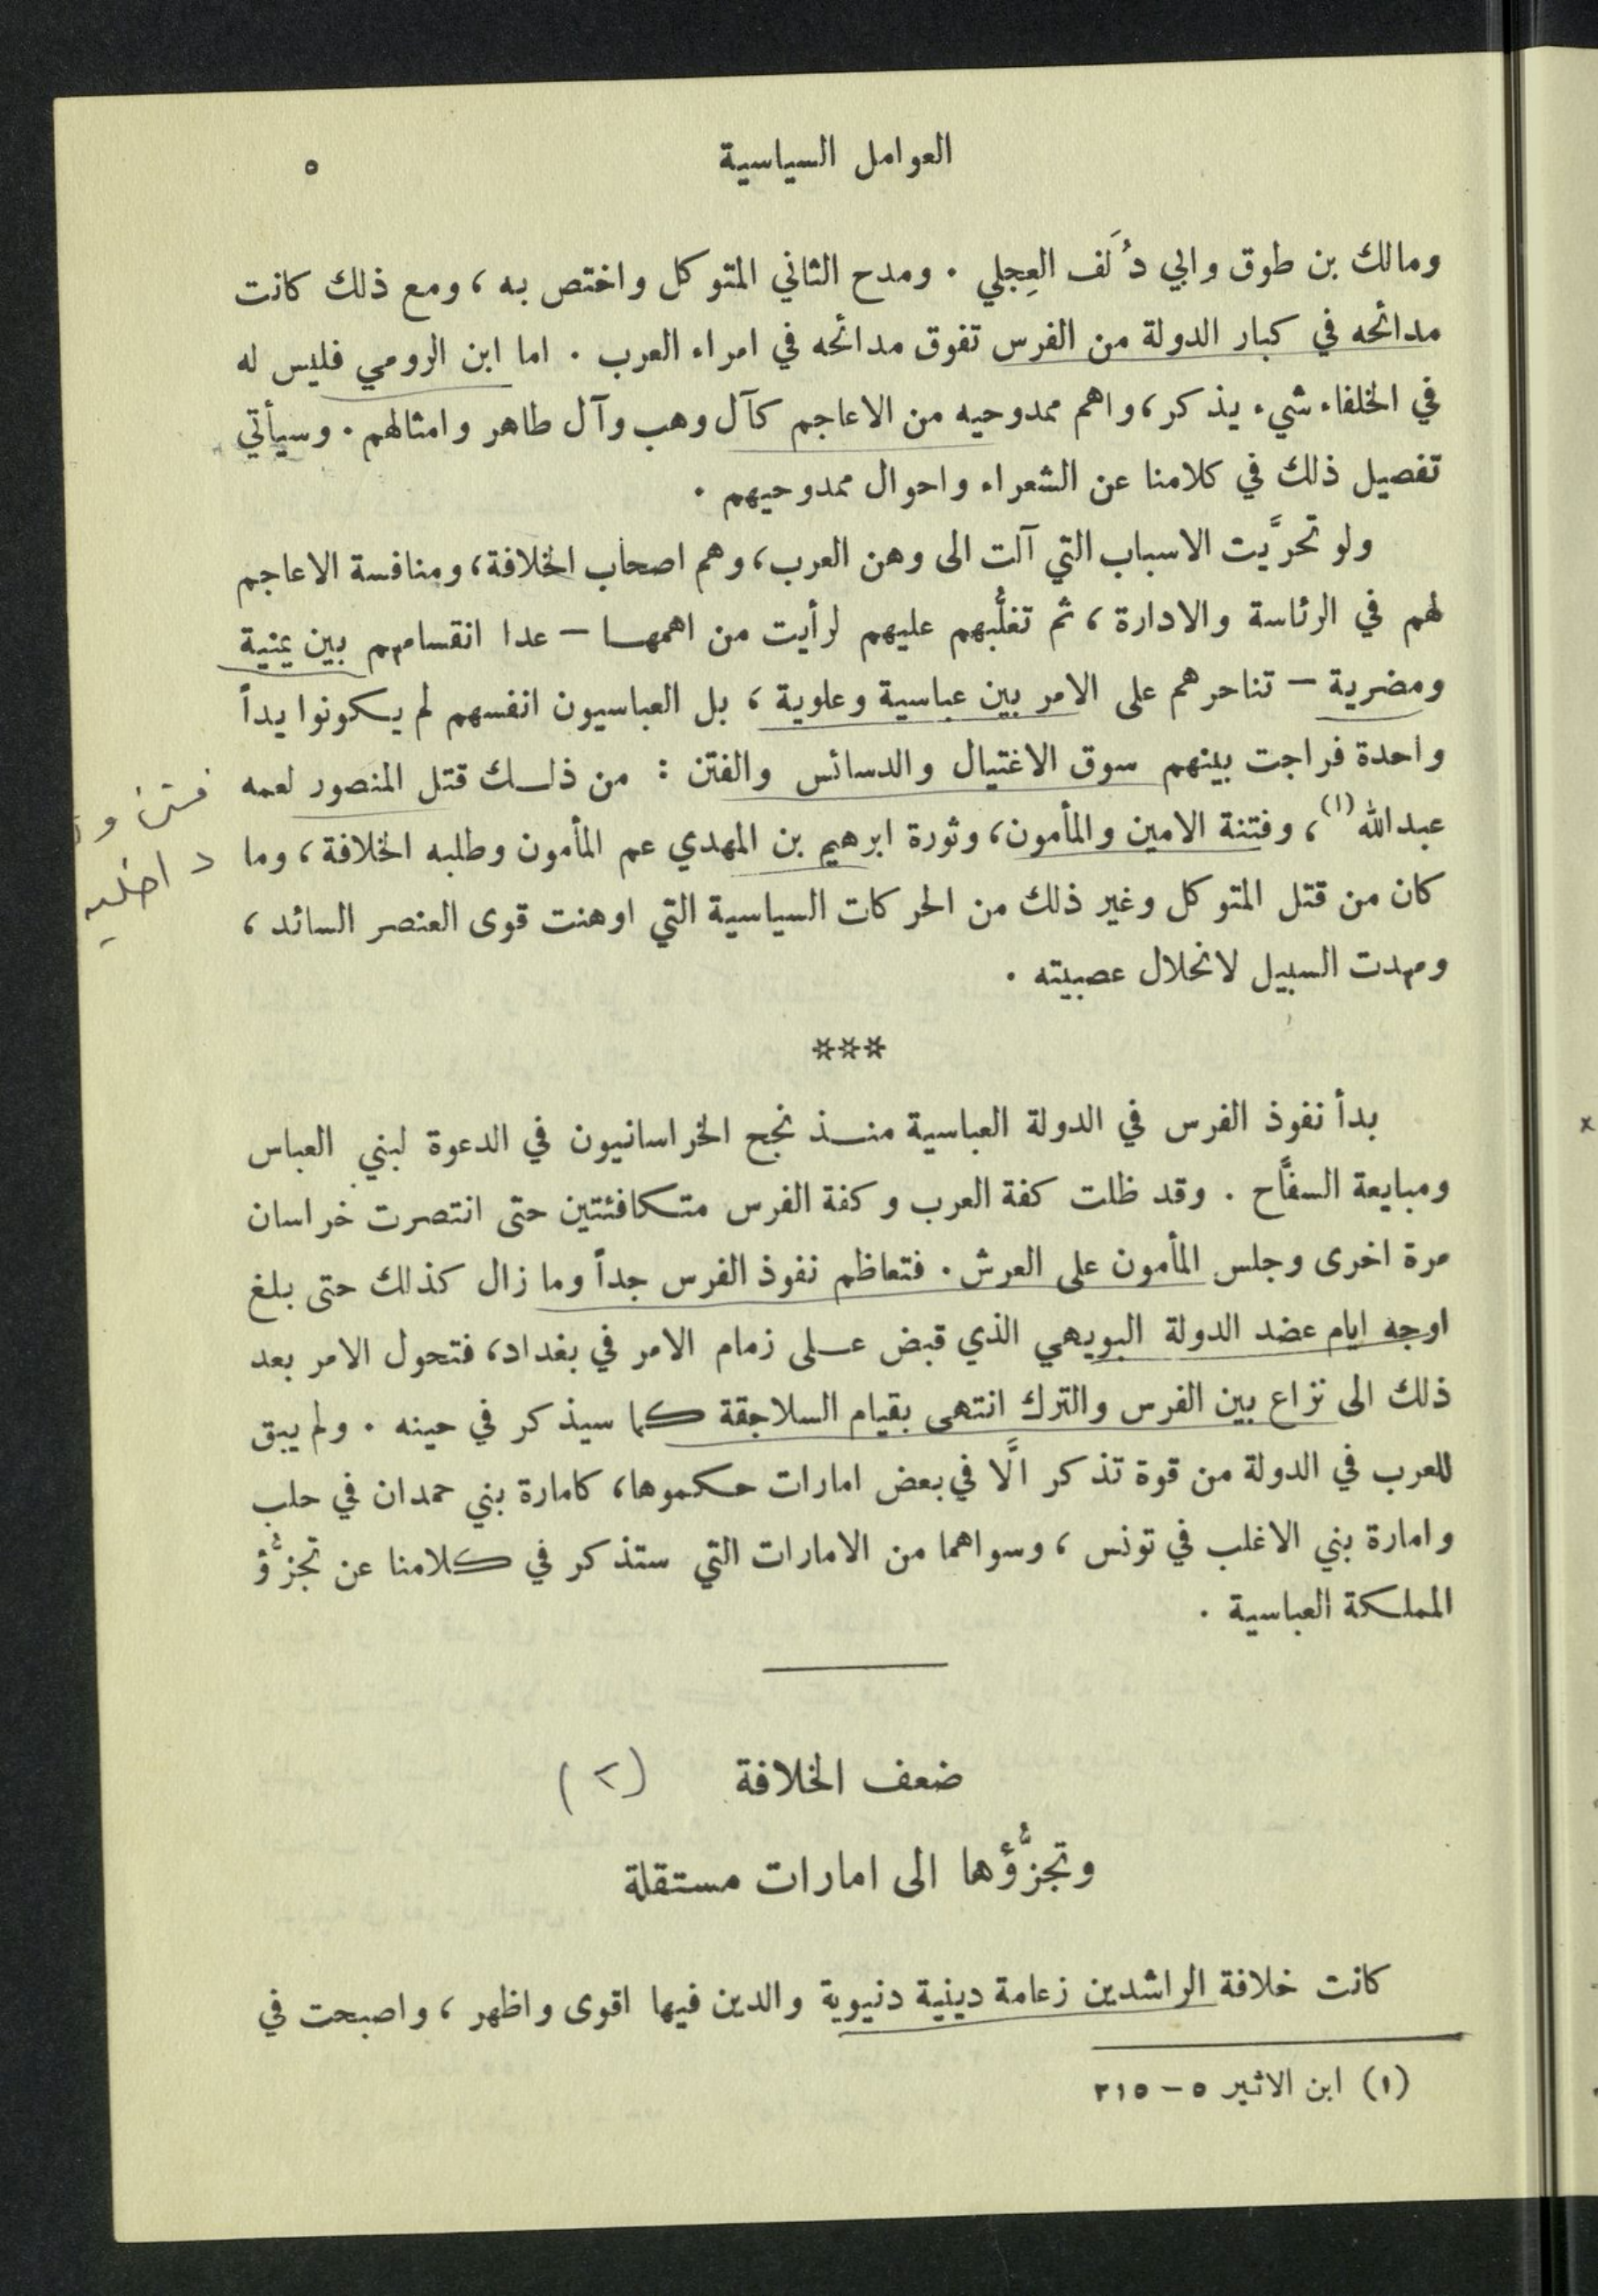 العوامل السياسية ٥
ومالك بن طوق وابي دُلَف العِجلي . ومدح الثاني المتوكل واختص به ، ومع ذلك كانت
مدائحه في كبار الدولة من الفرس تفوق مدائحه في امراء العرب . اما ابن الرومي فليس له
في الخلفاء شيء يذكر ، واهم ممدوحيه من الاعاجم كآل وهب وآل طاهر وامثالهم . وسيأتي
تفصيل ذلك في كلامنا عن الشعراء واحوال ممدوحيهم .
ولو تحرَّيت الاسباب التي آلت الى وهن العرب ، وهم اصحاب الخلافة ، ومنافسة الاعاجم
لهم في الرئاسة والادارة ، ثم تغلُّبهم عليهم لرأيت من اهمها – عدا انقسامهم بين يمنية
ومضرية – تناحرهم على الامر بين عباسية وعلوية ، بل العباسيون انفسهم لم يكونوا يداً
واحدة فراجت بينهم سوق الاغتيال والدسائس والفتن : من ذلك قتل المنصور لعمه
عبدالله (١) ، وفتنة الامين والمأمون ، وثورة ابرهيم بن المهدي عم المأمون وطلبه الخلافة ، وما
كان من قتل المتوكل وغير ذلك من الحركات السياسية التي اوهنت قوى العنصر السائد ،
ومهدت السبيل لانحلال عصبيته .
فتن و
داخلية
***
بدأ نفوذ الفرس في الدولة العباسية منذ نجح الخراسانيون في الدعوة لبني العباس
ومبايعة السفَّاح . وقد ظلت كفة العرب وكفة الفرس متكافئتين حتى انتصرت خراسان
مرة اخرى وجلس المأمون على العرش . فتعاظم نفوذ الفرس جداً وما زال كذلك حتى بلغ
اوجه ايام عضد الدولة البويهي الذي قبض على زمام الامر في بغداد ، فتحول الامر بعد
ذلك الى نزاع بين الفرس والترك انتهى بقيام السلاجقة كما سيذكر في حينه . ولم يبق
للعرب في الدولة من قوة تذكر الَّا في بعض امارات حكموها ، كامارة بني حمدان في حلب
وامارة بني الاغلب في تونس ، وسواهما من الامارات التي ستذكر في كلامنا عن تجزُّؤ
المملكة العباسية .
ضعف الخلافة (٢)
وتجزُّؤها الى امارات مستقلة
كانت خلافة الراشدين زعامة دينية دنيوية والدين فيها اقوى واظهر ، واصبحت في
(١) ابن الاثير ٥ – ٢١٥